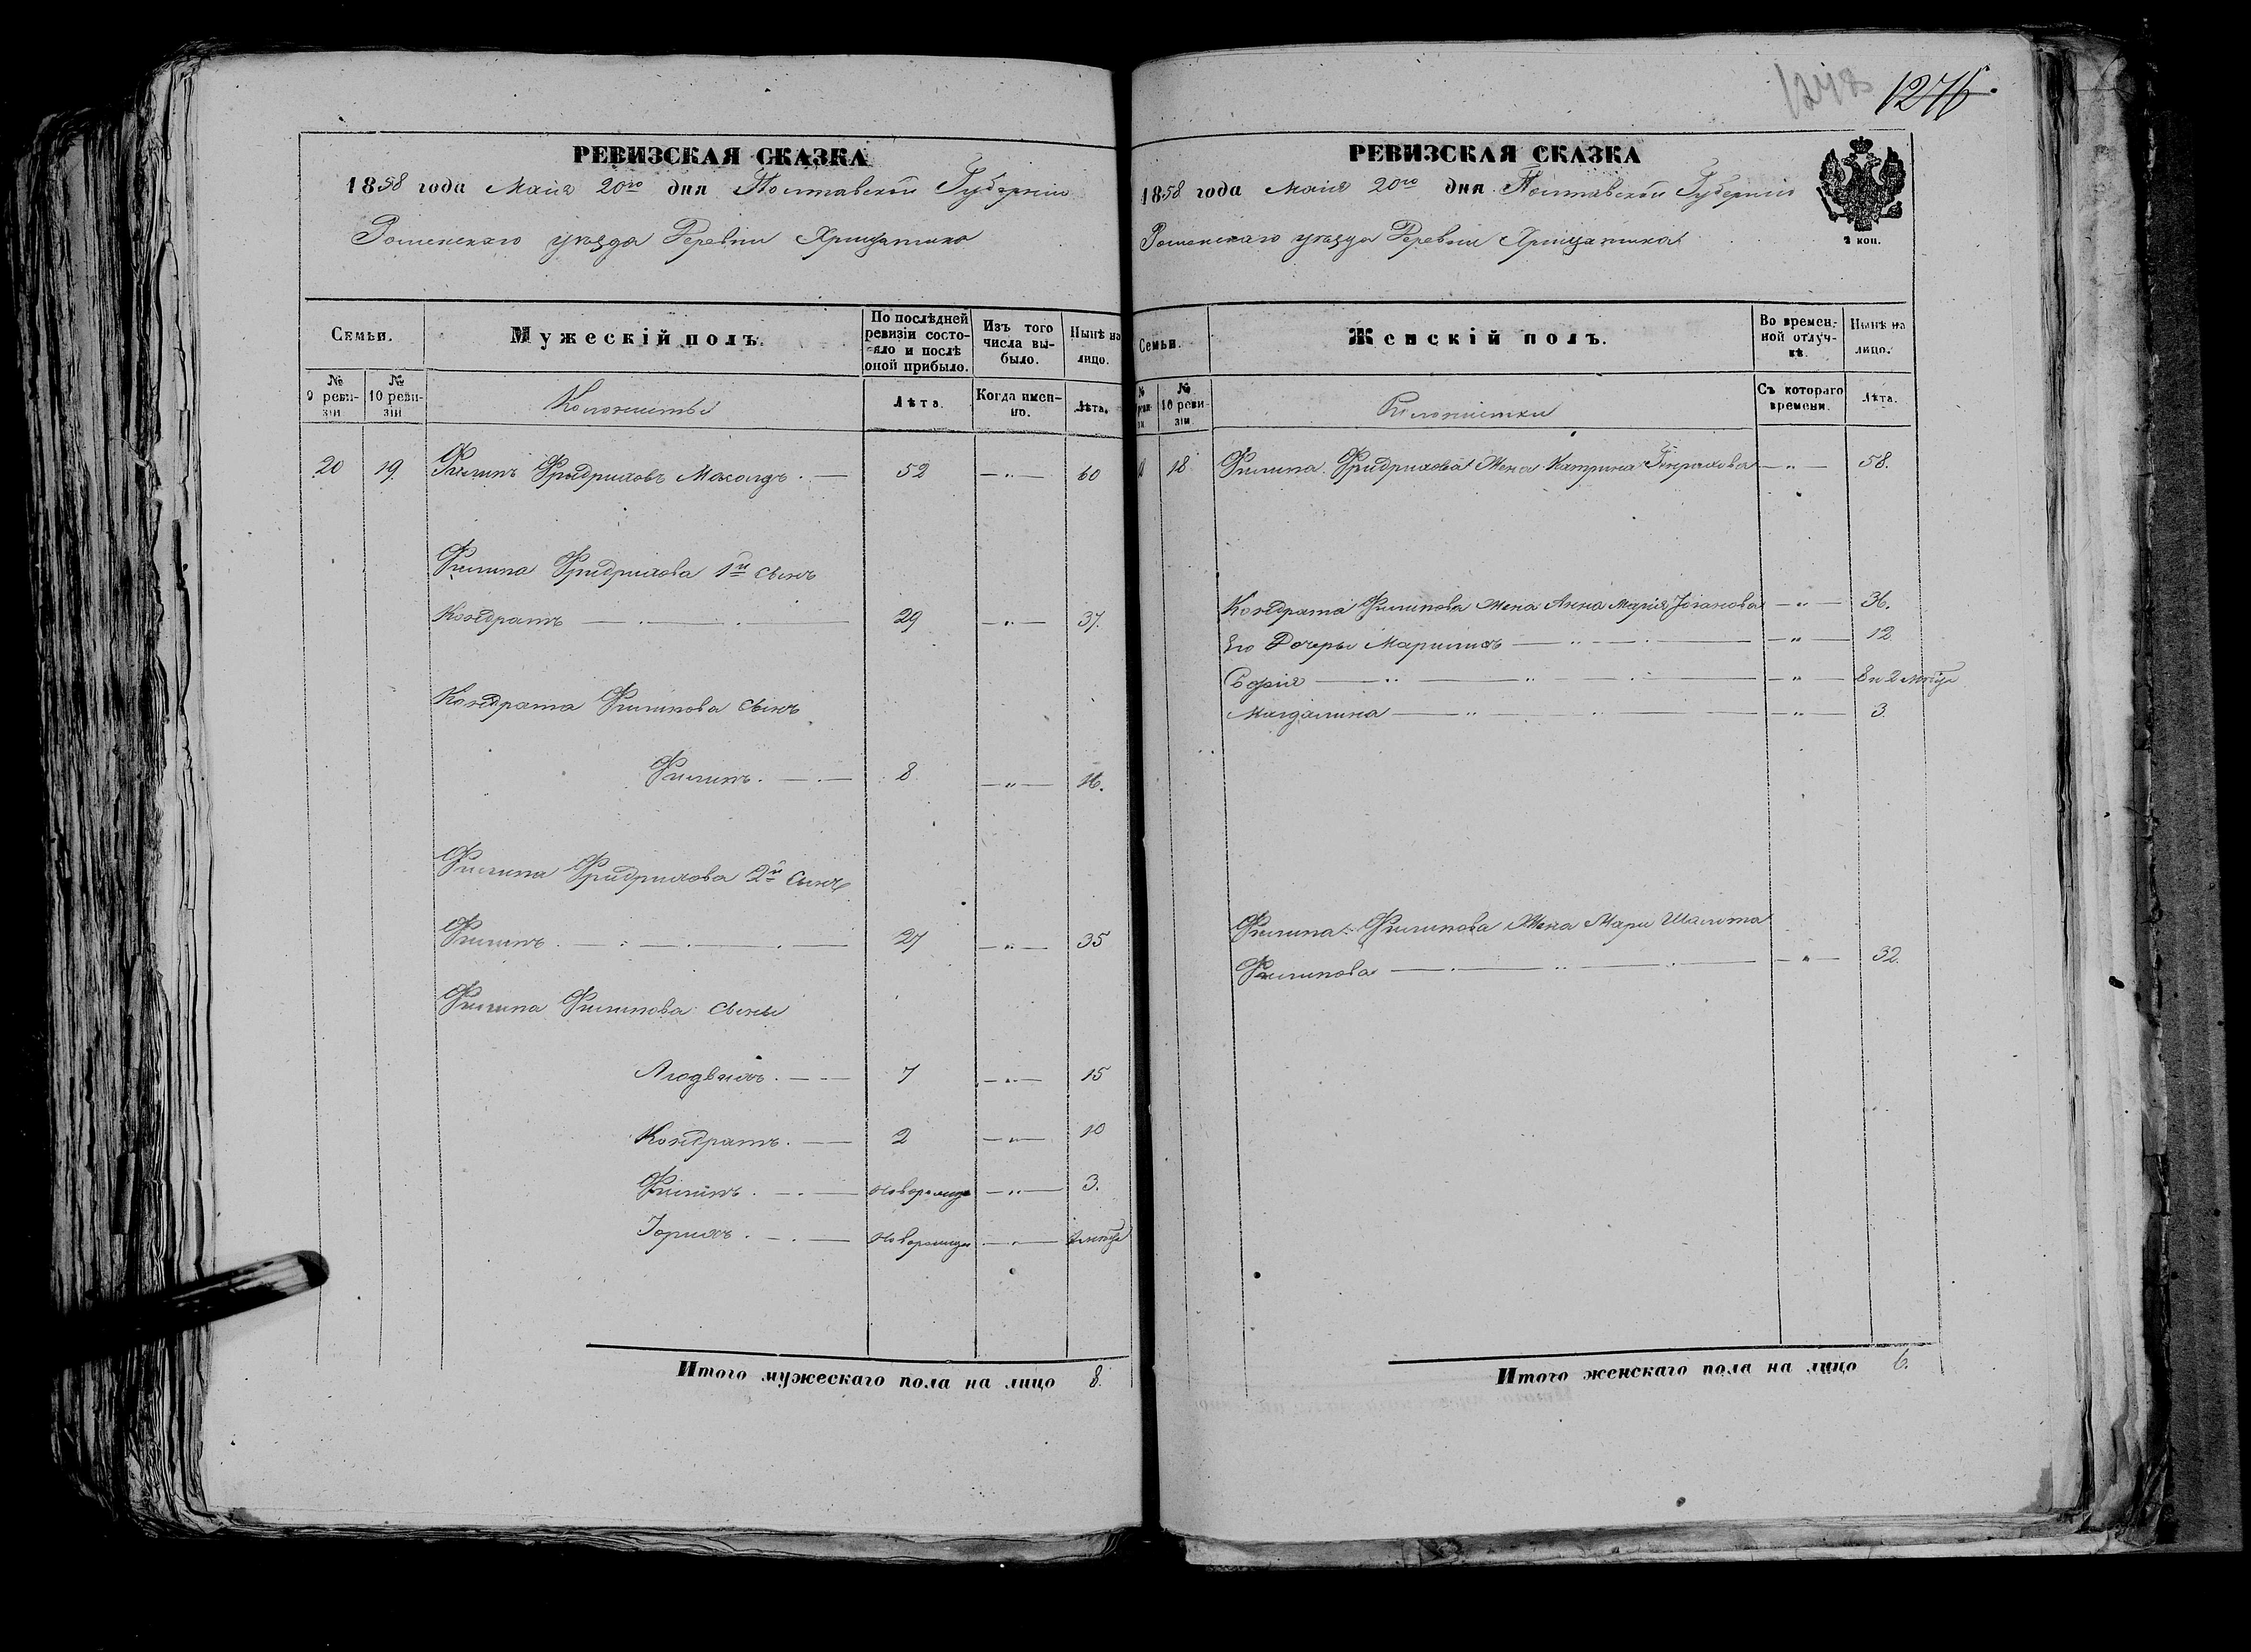 РЕВИЗСКАЯ СКАЗКА
1858 года Маія 20го дня Полтавской Губерніи
Роменскаго уѣзда Деревни
Семьи.
Мужескій полъ.
По послѣдней ревизіи состояло и послѣ оной прибыло.
Изъ того числа выбыло.
Нынѣ на лицо.
№ 9 ревизіи
№ 10 ревизіи
Колонисты
Лѣта.
Когда именно.
Лѣта.
20 19. Филипъ Фридриховъ 52 — „ — 60
Филипа Фридрихова 1й сынъ
Кондратъ 29 — „ — 37.
Кондрата Филипова сынъ
Филипъ. 8 — „ — 16.
Филипа Фридрихова 2й сынъ
Филипъ 27 — „ — 35
Филипа Филипова сыны
Людвихъ. 7 — „ — 15
Кондратъ. 2 — „ — 10
Филипъ. — „ — 3.
Итого мужескаго пола на лицо 8.
1276.
РЕВИЗСКАЯ СКАЗКА
1858 года Маія 20го дня Полтавской Губерніи
Роменскаго уѣзда Деревни
2 коп.
Семьи.
Женскій полъ.
Во временной отлучкѣ.
Нынѣ на лицо.
№ 10 ревизіи
Колонистки
Съ котораго времени.
Лѣта.
18 Филипа Фридрихова Жена Катрина — „ — 58.
Кондрата Филипова Жена Анна Марія Іоганова — „ — 36.
Его Дочери — „ — 12.
Софія — „ — 8 и 2 мѣся
Магдалина — „ — 3.
Филипа Филипова Жена Мари Шалота
Филипова — „ — 32.
Итого женскаго пола на лицо 6.